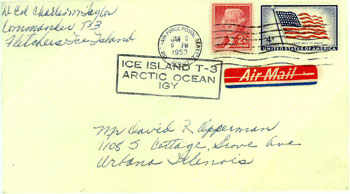 Lt Col Charles M Taylor
Commander T-3
Fletchers Ice Island
AIR FORCE POSTAL SERVICE
JAN 6
8 PM
1959
2¢
4¢
UNITED STATES OF AMERICA
ICE ISLAND T-3
ARCTIC OCEAN
IGY
Air Mail
Mr David R Opperman
1108 S Cottage Grove Ave
Urbana Illinois